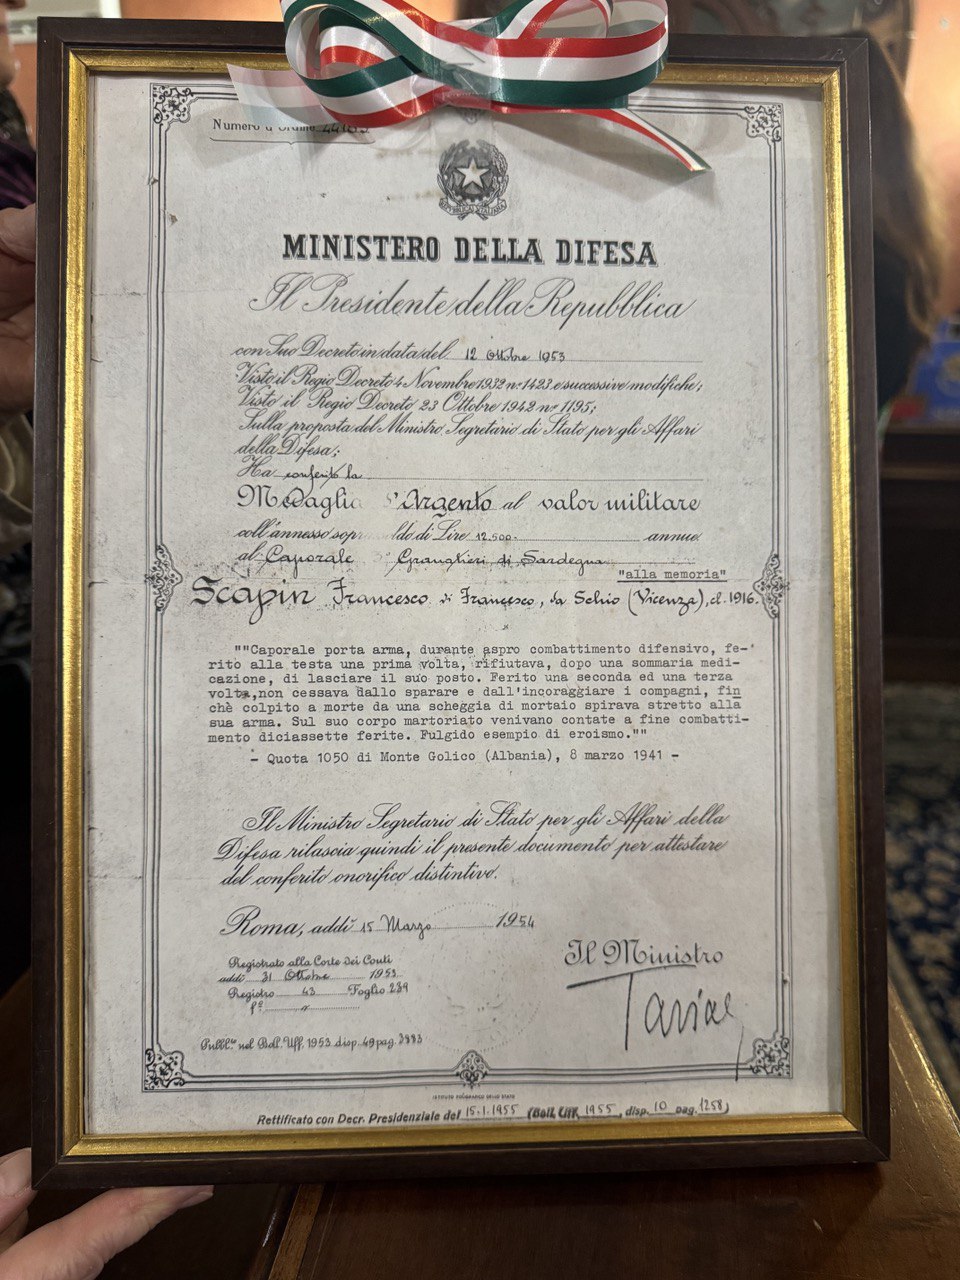 Numero d'Ordine
REPUBBLICA ITALIANA
MINISTERO DELLA DIFESA
Il Presidente della Repubblica
con Suo Decreto in data del 12 Ottobre 1953
Visto il Regio Decreto 4 Novembre 1932 n° 1423 e successive modifiche;
Visto il Regio Decreto 23 Ottobre 1942 n° 1195;
Sulla proposta del Ministro Segretario di Stato per gli Affari
della Difesa;
Ha conferito la
Medaglia d'Argento al valor militare
coll'annesso sopr ldo di Lire 12.500. annue
al Caporale 3° Granatieri di Sardegna
"alla memoria"
Scapin Francesco di Francesco, da Schio (Vicenza), cl. 1916.
""Caporale porta arma, durante aspro combattimento difensivo, fe-
rito alla testa una prima volta, rifiutava, dopo una sommaria medi-
cazione, di lasciare il suo posto. Ferito una seconda ed una terza
volta, non cessava dallo sparare e dall'incoraggiare i compagni, fin
chè colpito a morte da una scheggia di mortaio spirava stretto alla
sua arma. Sul suo corpo martoriato venivano contate a fine combatti-
mento diciassette ferite. Fulgido esempio di eroismo.""
- Quota 1050 di Monte Golico (Albania), 8 marzo 1941 -
Il Ministro Segretario di Stato per gli Affari della
Difesa rilascia quindi il presente documento per attestare
del conferito onorifico distintivo.
Roma, addì 15 Marzo 1954
Registrato alla Corte dei Conti
addì 31 Ottobre 1953
Registro 43 Foglio 239
Il Ministro
Pubbl.to nel Boll. Uff. 1953 disp. 49 pag. 3993
ISTITUTO POLIGRAFICO DELLO STATO
Rettificato con Decr. Presidenziale del 15.1.1955 (Boll. Uff. 1955, disp. 10 pag. 1258)